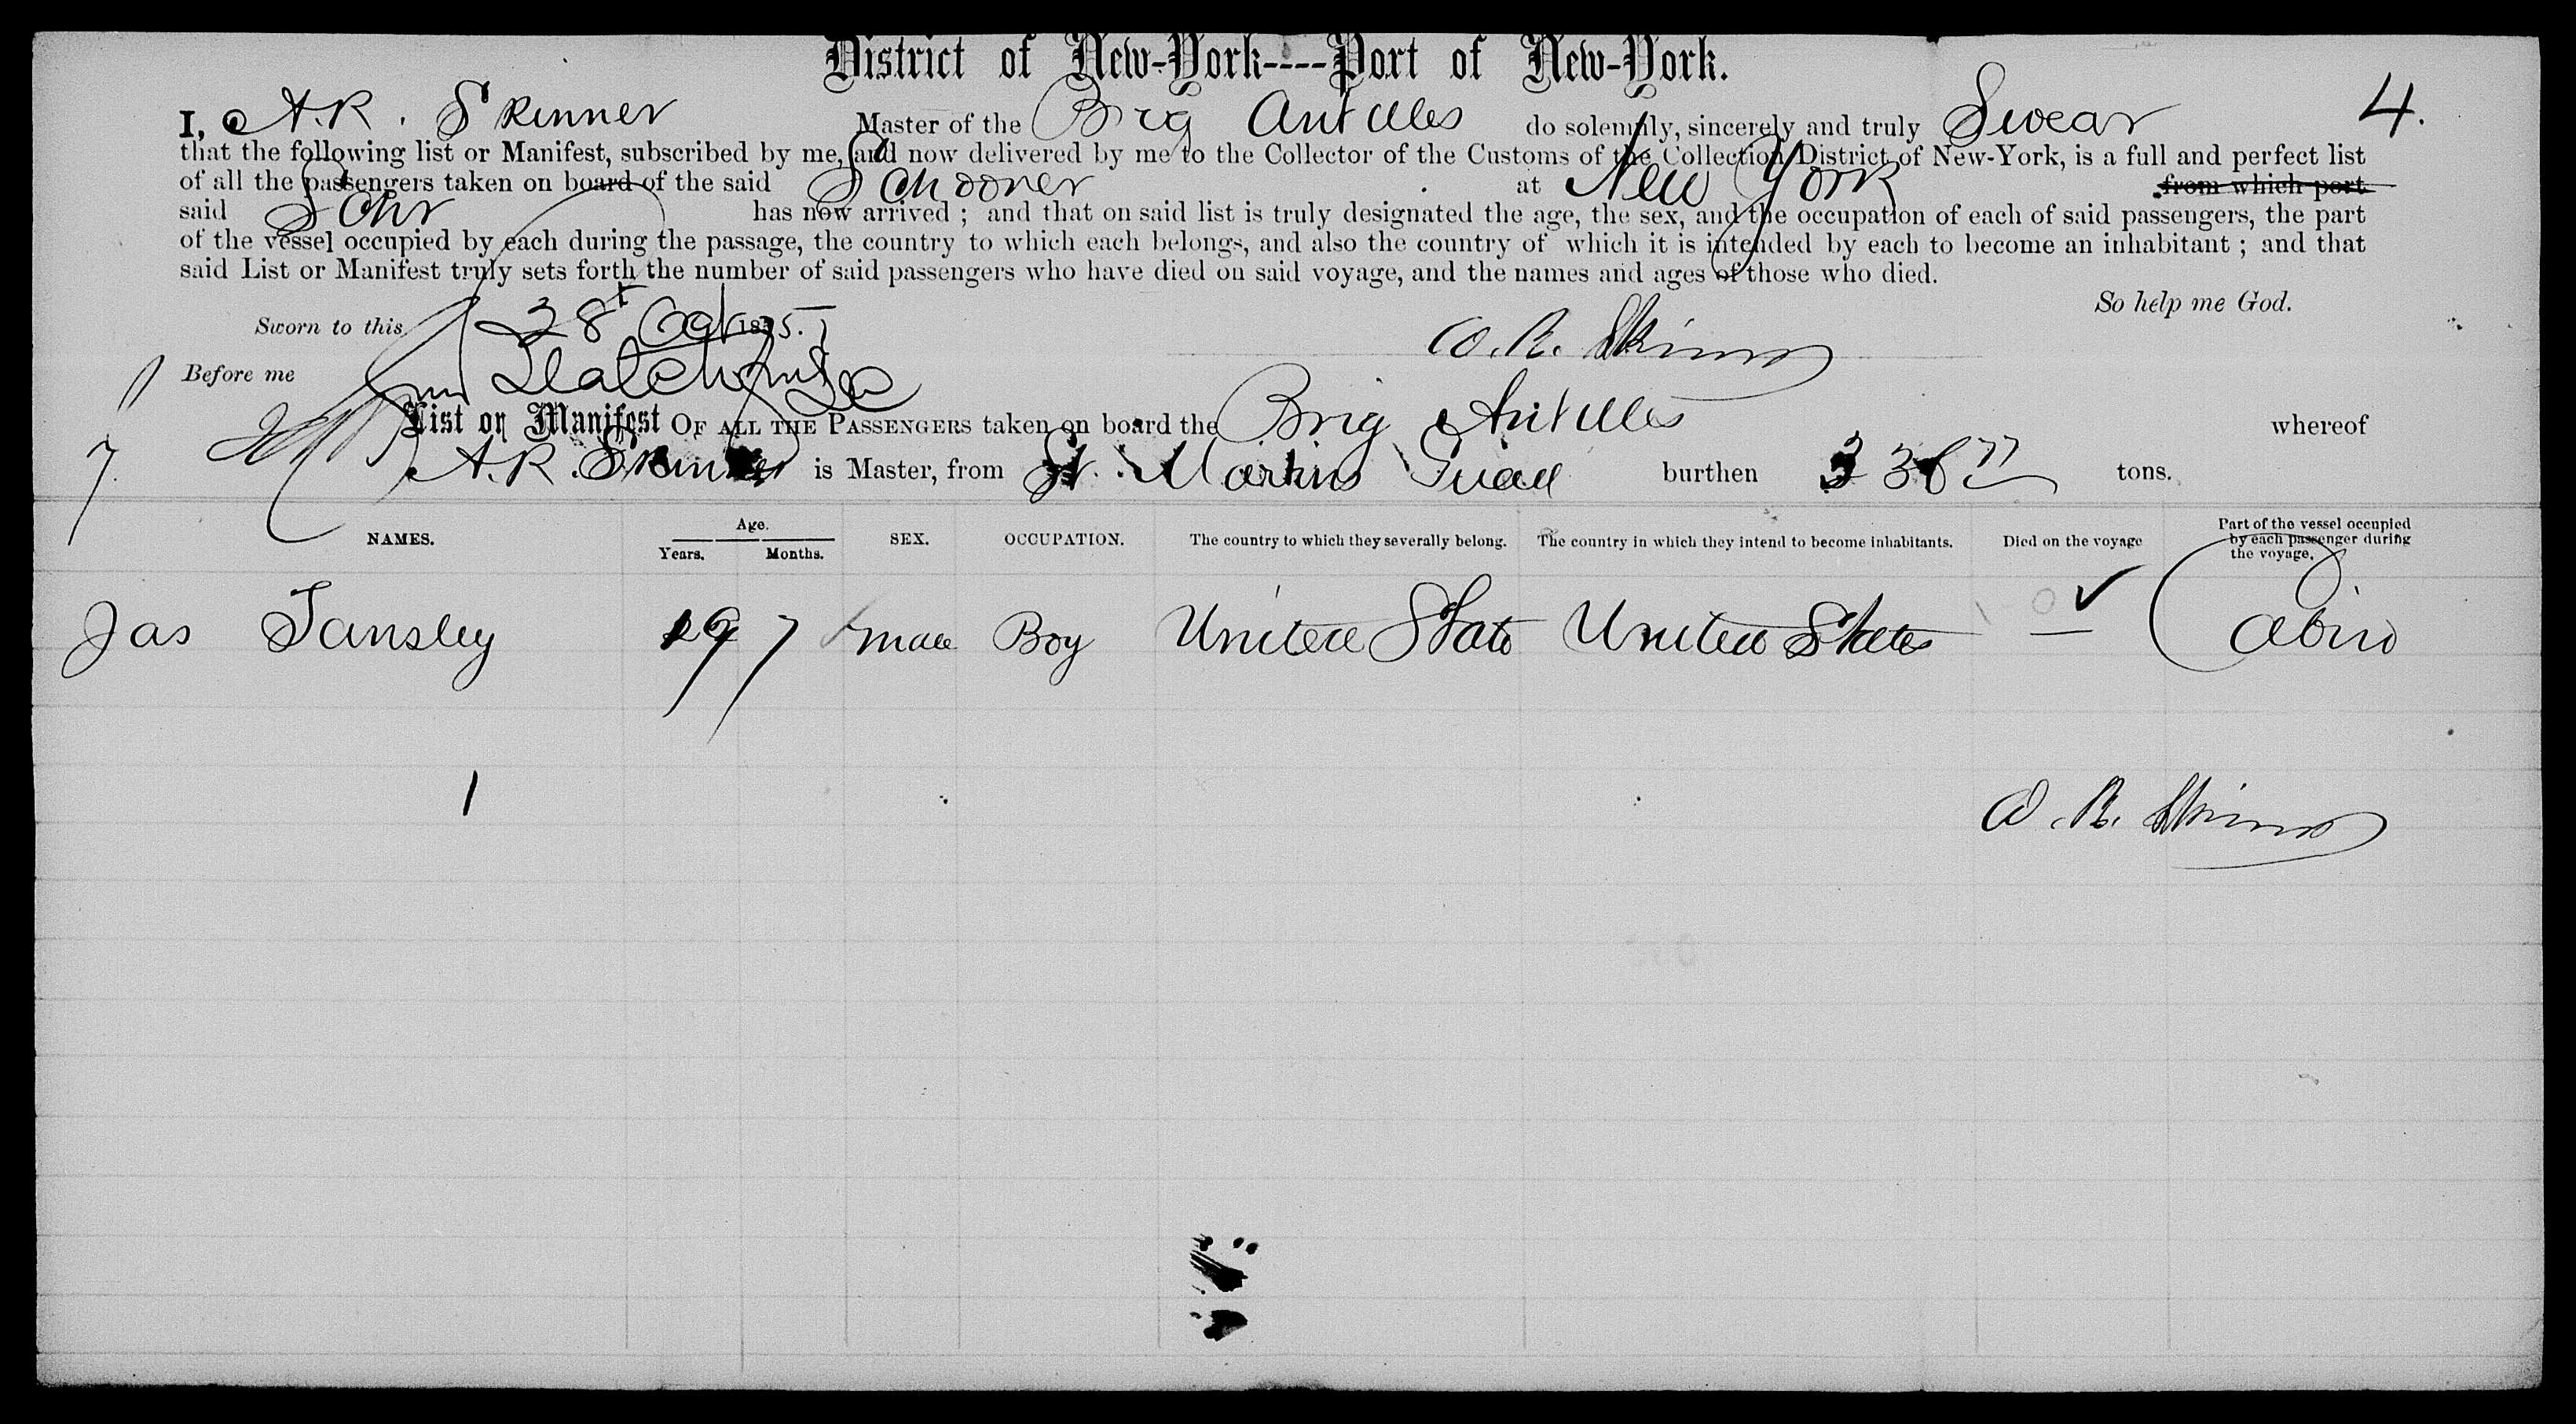 District of New-York----Port of New-York.
4.
I, A.R. Skinner Master of the Brig Antilles do solemnly, sincerely and truly Swear
that the following list or Manifest, subscribed by me, and now delivered by me to the Collector of the Customs of the Collection District of New-York, is a full and perfect list
of all the passengers taken on board of the said Schooner at New York from which port
said Schr has now arrived ; and that on said list is truly designated the age, the sex, and the occupation of each of said passengers, the part
of the vessel occupied by each during the passage, the country to which each belongs, and also the country of which it is intended by each to become an inhabitant ; and that
said List or Manifest truly sets forth the number of said passengers who have died on said voyage, and the names and ages of those who died.
So help me God.
Sworn to this 28t Oct 1875.
A. R. Skinner
Before me
List or Manifest OF ALL THE PASSENGERS taken on board the Brig Antilles whereof
7. A.R. Skinner is Master, from St. Martins Guad burthen tons.
NAMES. Age. Years. Months. SEX. OCCUPATION. The country to which they severally belong. The country in which they intend to become inhabitants. Died on the voyage Part of the vessel occupied by each passenger during the voyage.
Jas Tansley 19 7 male Boy United States United States — Cabin
1
A. R. Skinner